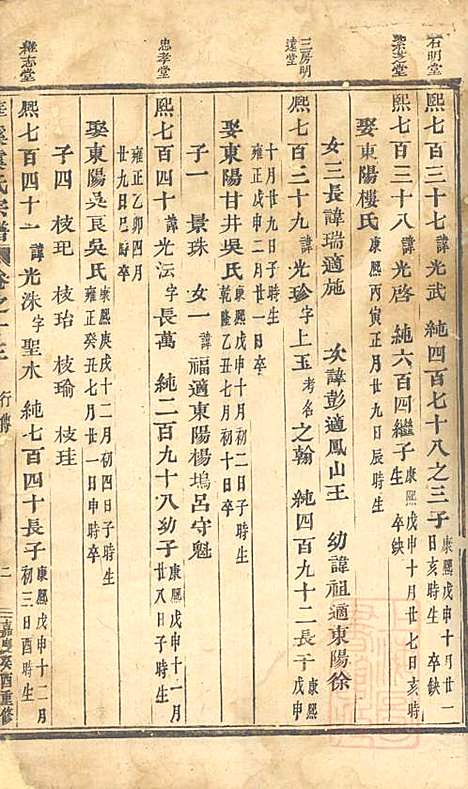 石明堂
熙七百三十七諱光武純四百七十八之三子康熙戊申十月廿一日亥時生卒缺
紫芝堂
熙七百三十八諱光啓純六百四繼子康熙戊申十月廿七日亥時生卒缺
娶東陽樓氏康熙丙寅正月廿九日辰時生
女三長諱瑞適施次諱彭適鳳山王幼諱祖適東陽徐
三房明遠堂
熙七百三十九諱光珍字上玉考名之翰純四百九十二長子康熙戊申
十月廿九日子時生雍正戊申二月廿一日卒
娶東陽甘井吳氏康熙 月初二日子時生乾隆乙丑七月初八日子時卒
子一景珠女一諱福適東陽楊塢呂守魁
忠孝堂
熙七百四十諱光沄字長萬純二百九十八幼子康熙戊申十一月廿八日子時生
雍正乙卯四月廿九日巳時卒
娶東陽吳良吳氏康熙庚戌十二月初四日子時生雍正癸丑七月廿一日申時卒
子四枝玘枝珆枝瑜枝珪
雍志堂
熙七百四十一諱光洙字聖水純七百四十長子康熙戊申十二月初三日酉時生
氏宗譜卷之十三行傳二嘉慶癸酉重修